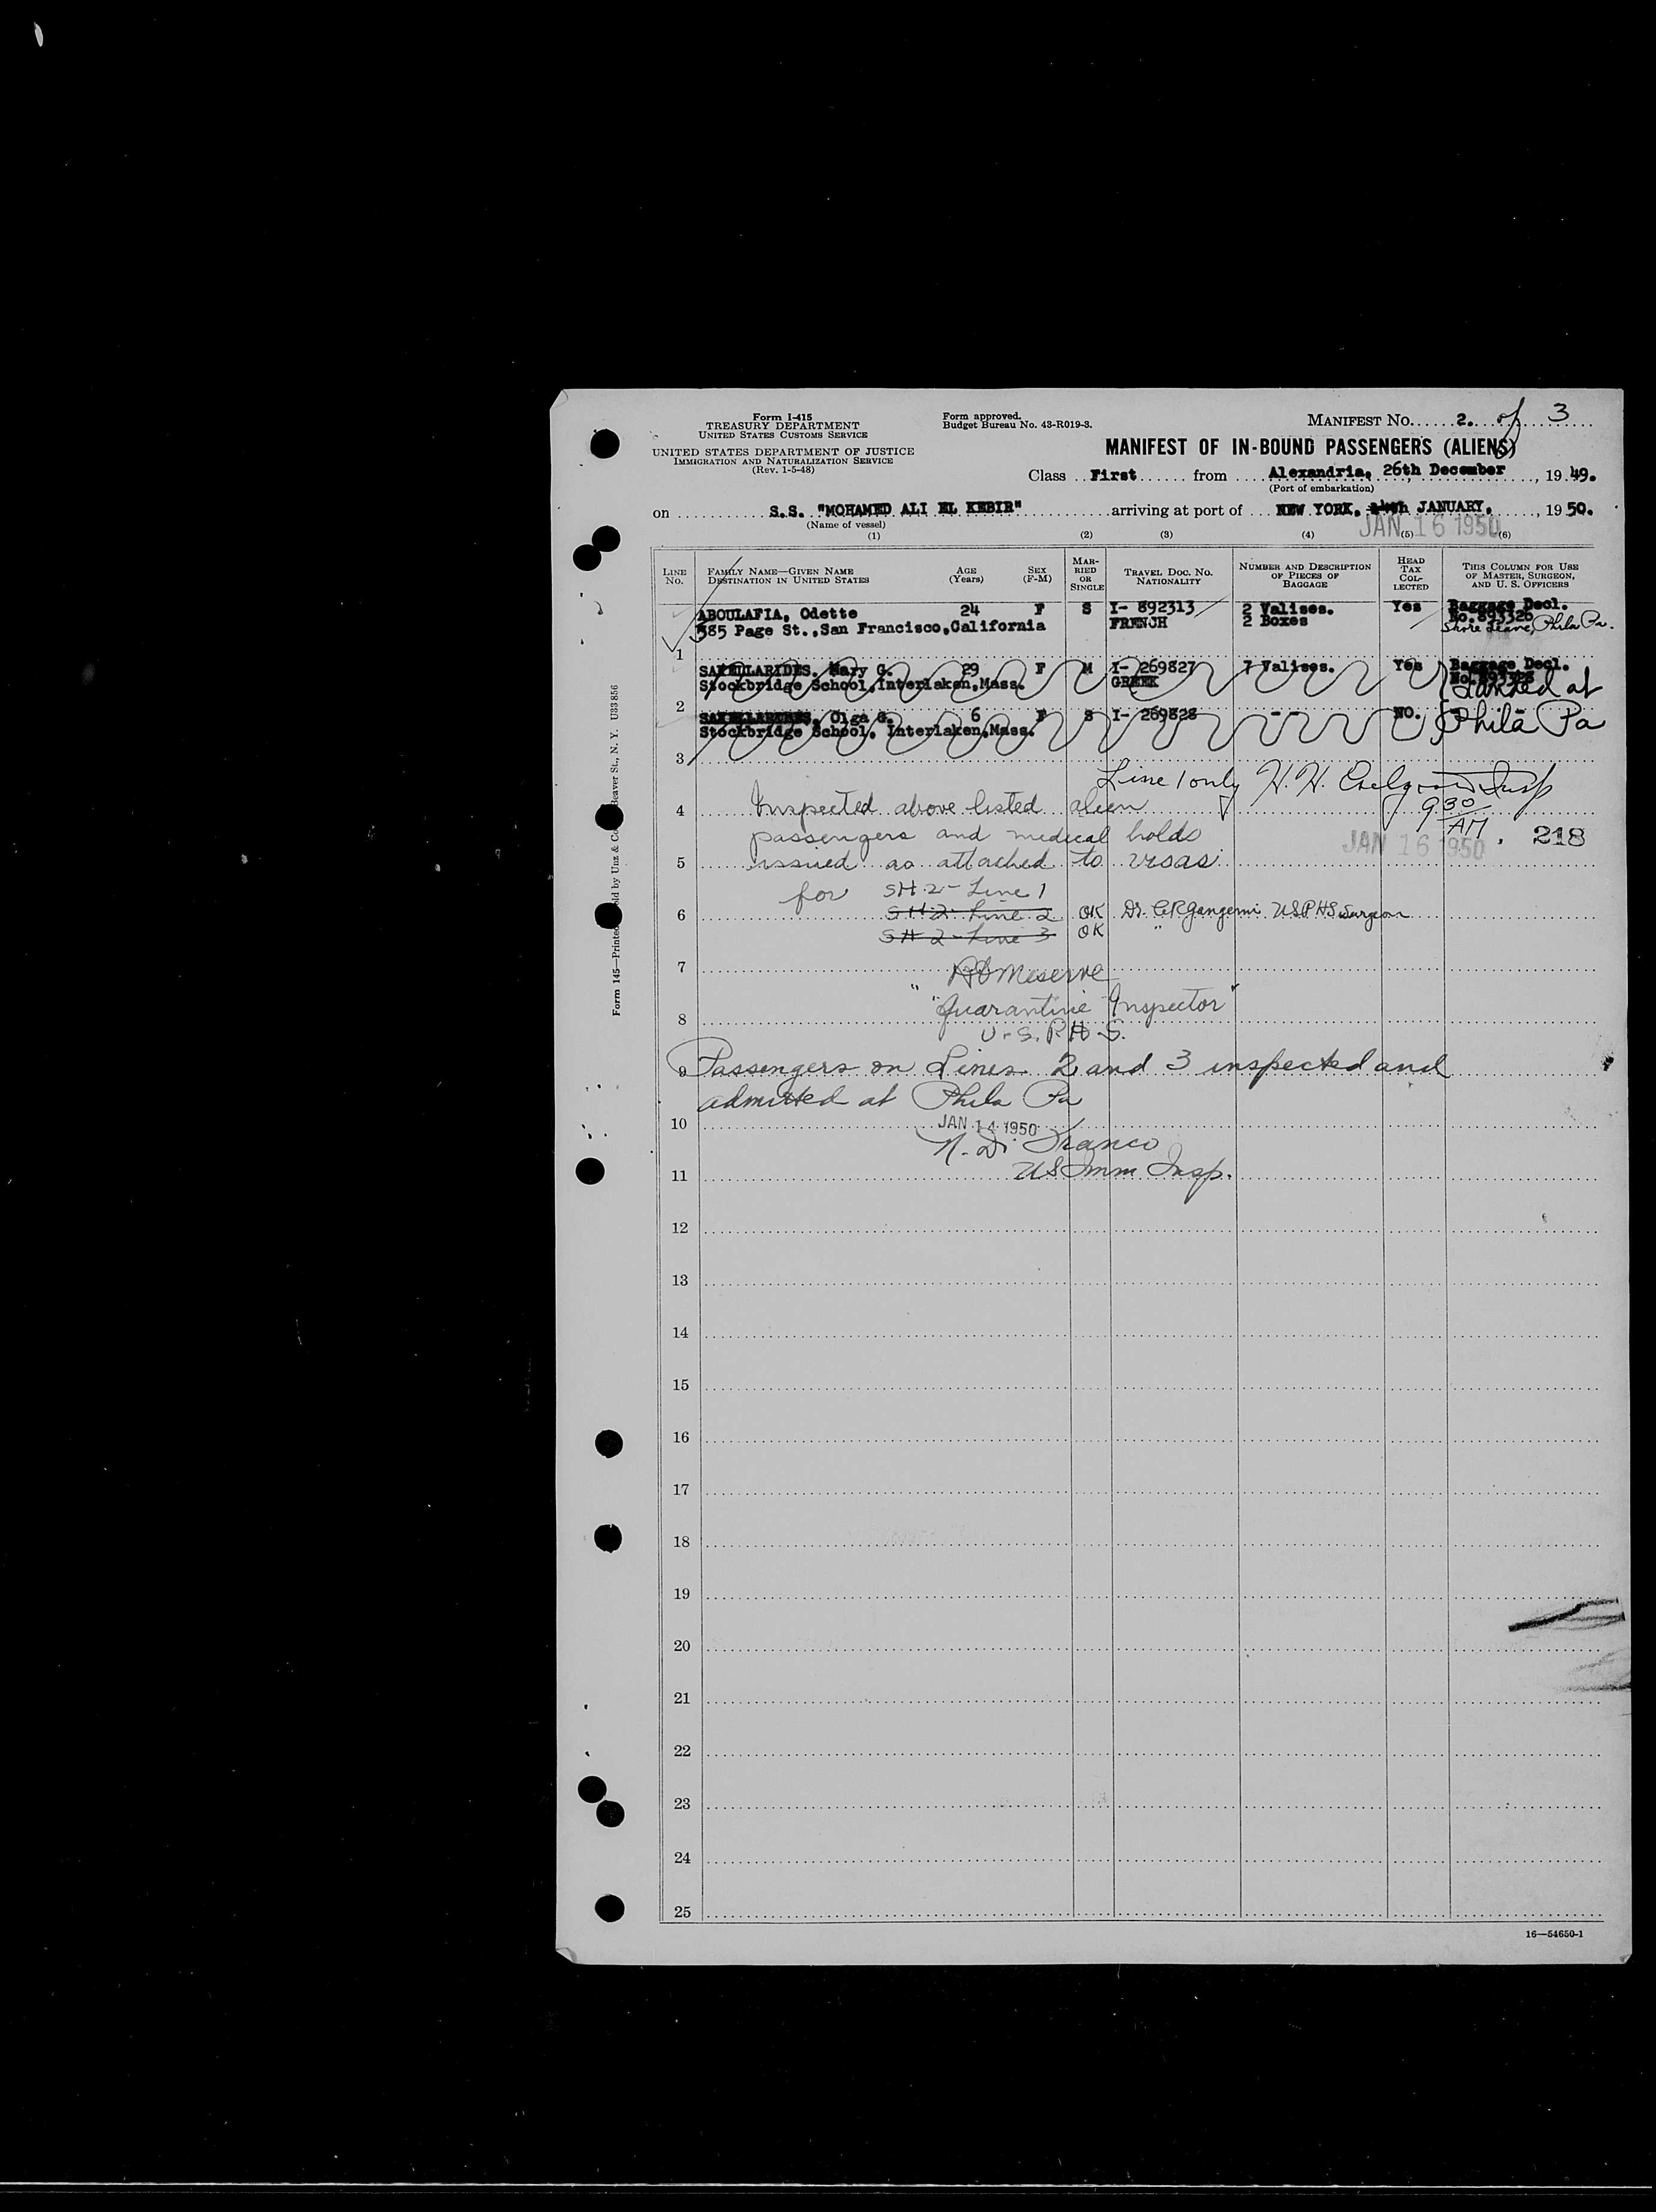 Form I-415
TREASURY DEPARTMENT
UNITED STATES CUSTOMS SERVICE
UNITED STATES DEPARTMENT OF JUSTICE
IMMIGRATION AND NATURALIZATION SERVICE
(Rev. 1-5-48)
Form approved.
Budget Bureau No. 43-R019-3.
MANIFEST NO. 2. of 3
MANIFEST OF IN-BOUND PASSENGERS (ALIENS)
Class First from Alexandria, 26th December, 19 49.
(Port of embarkation)
on S.S. "MOHAMED ALI EL KEBIR" arriving at port of NEW YORK, JANUARY, 19 50.
(Name of vessel)
JAN 16 1950
(1) (2) (3) (4) (5) (6)
LINE NO.
FAMILY NAME—GIVEN NAME
DESTINATION IN UNITED STATES
AGE (Years)
SEX (F-M)
MARRIED OR SINGLE
TRAVEL DOC. NO. NATIONALITY
NUMBER AND DESCRIPTION OF PIECES OF BAGGAGE
HEAD TAX COLLECTED
THIS COLUMN FOR USE OF MASTER, SURGEON, AND U. S. OFFICERS
ABOULAFIA, Odette 24 F S I- 892313 2 Valises. Yes Baggage Decl.
385 Page St., San Francisco, California FRENCH 2 Boxes No. 893326
Shore Leave, Phila Pa.
1
SAKELLARIDES. Mary G. 29 F M I- 269827 7 Valises. Yes Baggage Decl.
Stockbridge School, Interlaken, Mass. GREEK
Landed at
2
SAKELLARIDES, Olga G. 6 F S I- 269828 - - NO.
Stockbridge School, Interlaken, Mass.
Phila Pa
3
Line 1 only H. H. Insp
9 30 AM
4
Inspected above listed alien
passengers and medical holds
JAN 16 1950. 218
5
issued as attached to visas
for SH.2 - Line 1
6
SH.2. Line 2 OK Dr. C R Gangemi USPHS Surgeon
SH 2 - Line 3 OK "
7
Meserve
"Quarantine Inspector"
8
U.S.P.H.S.
9
Passengers on Lines 2 and 3 inspected and
admitted at Phila Pa
10
JAN 14 1950
N. D. Franco
11
US Imm Insp.
12
13
14
15
16
17
18
19
20
21
22
23
24
25
16—54650-1
Form 145—Printed
ld by Unz & Co
Beaver St., N. Y. U33856